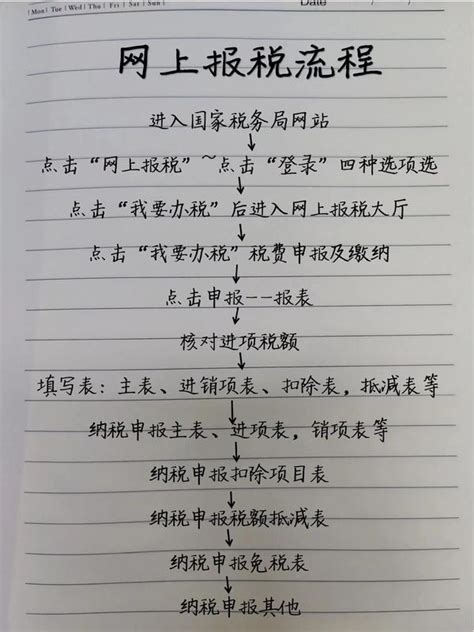 Mon Tue Wed Thu Fri Sat Sun
Date
网上报税流程
进入国家税务局网站
点击“网上报税”~点击“登录”四种选项选
点击“我要办税”后进入网上报税大厅
点击“我要办税”税费申报及缴纳
点击申报--报表
核对进项税额
填写表：主表、进销项表、扣除表，抵减表等
纳税申报主表、进项表，销项表等
纳税申报扣除项目表
纳税申报税额抵减表
纳税申报免税表
纳税申报其他